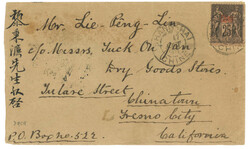 Mr. Lie Ping Lin
c/o Messrs. Tuck On Jan
Dry Goods Store
Tulare Street
Chinatown
Fresno City
California
P.O. Box no. 522.
黎東
先生收啓
CHINE
25